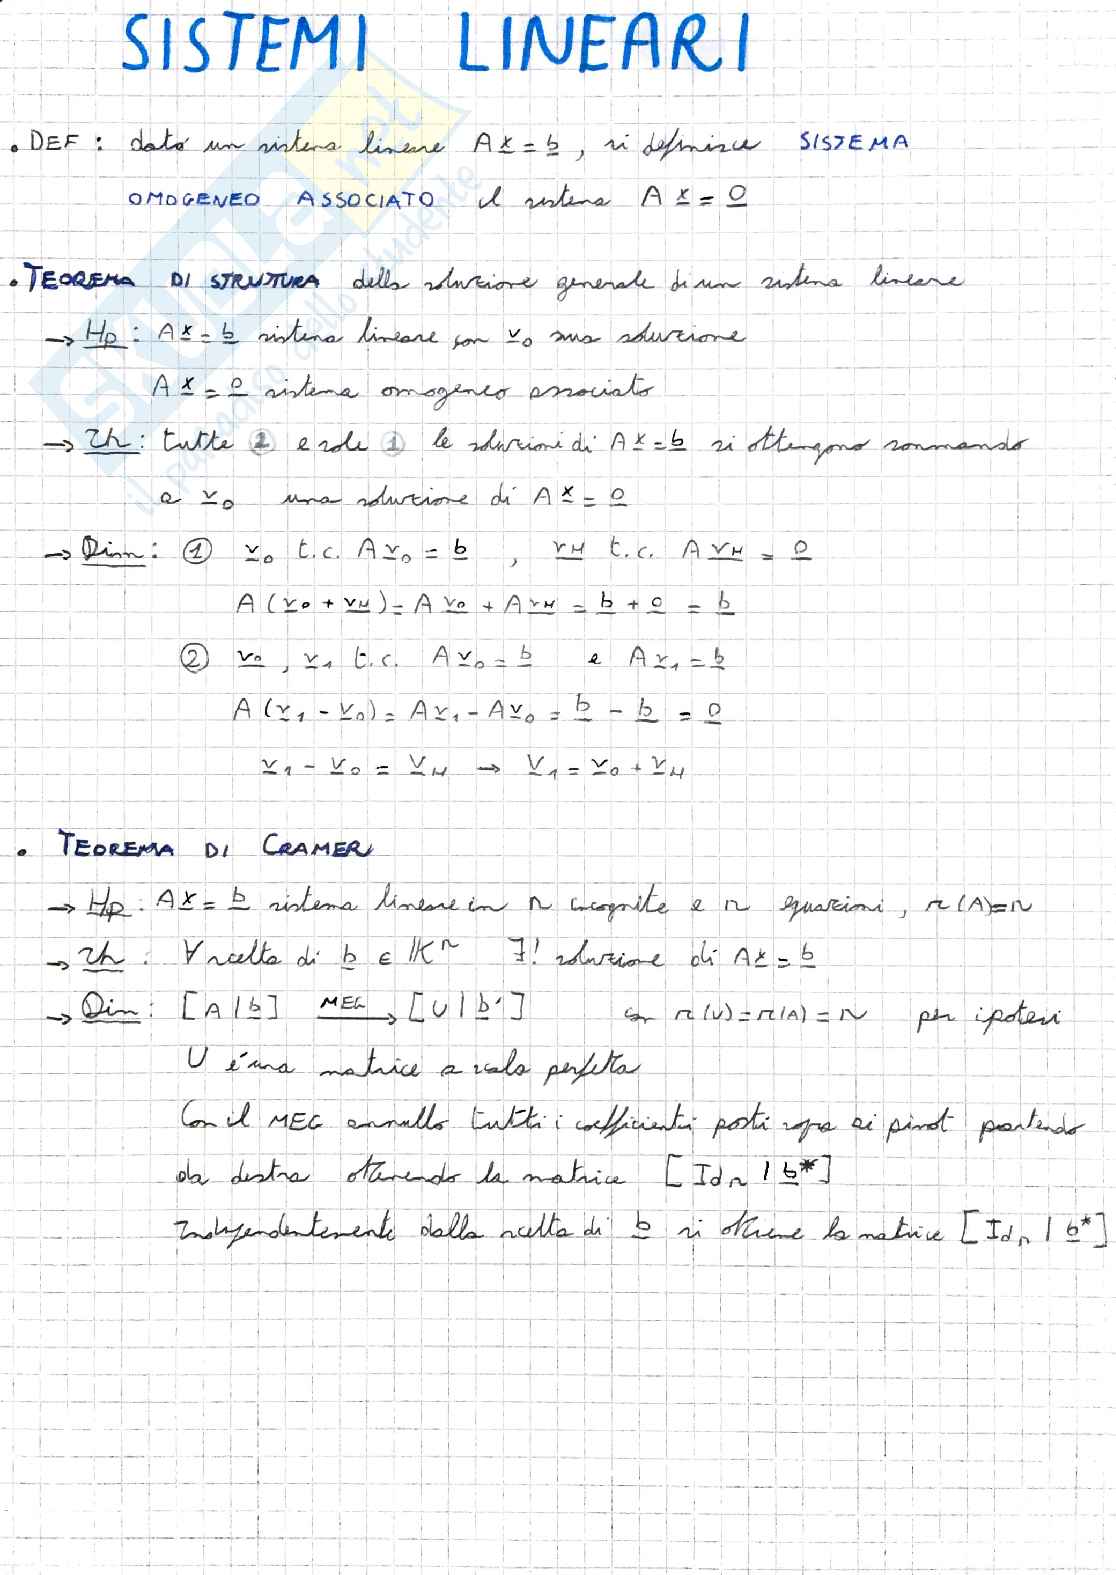 SISTEMI LINEARI
• DEF : dato un sistema lineare A x = b , si definisce SISTEMA
OMOGENEO ASSOCIATO il sistema A x = 0
• TEOREMA DI STRUTTURA della soluzione generale di un sistema lineare
→ Hp : A x = b sistema lineare con v₀ sua soluzione
A x = 0 sistema omogeneo associato
→ Th : tutte ② e sole ① le soluzioni di A x = b si ottengono sommando
a v₀ una soluzione di A x = 0
→ Dim : ① v₀ t.c. A v₀ = b , v_H t.c. A v_H = 0
A ( v₀ + v_H ) = A v₀ + A v_H = b + 0 = b
② v₀ , v₁ t.c. A v₀ = b e A v₁ = b
A ( v₁ - v₀ ) = A v₁ - A v₀ = b - b = 0
v₁ - v₀ = v_H → v₁ = v₀ + v_H
• TEOREMA DI CRAMER
→ Hp : A x = b sistema lineare in n incognite e n equazioni , r (A) = n
→ Th : ∀ scelta di b ∈ Kⁿ ∃! soluzione di A x = b
→ Dim : [ A | b ] MEG → [ U | b' ] con r (U) = r (A) = n per ipotesi
U é una matrice a scala perfetta
Con il MEG annullo tutti i coefficienti posti sopra ai pivot partendo
da destra ottenendo la matrice [ Idₙ | b* ]
Indipendentemente dalla scelta di b si ottiene la matrice [ Idₙ | b* ]
SKUOLA.net
il paradiso dello studente